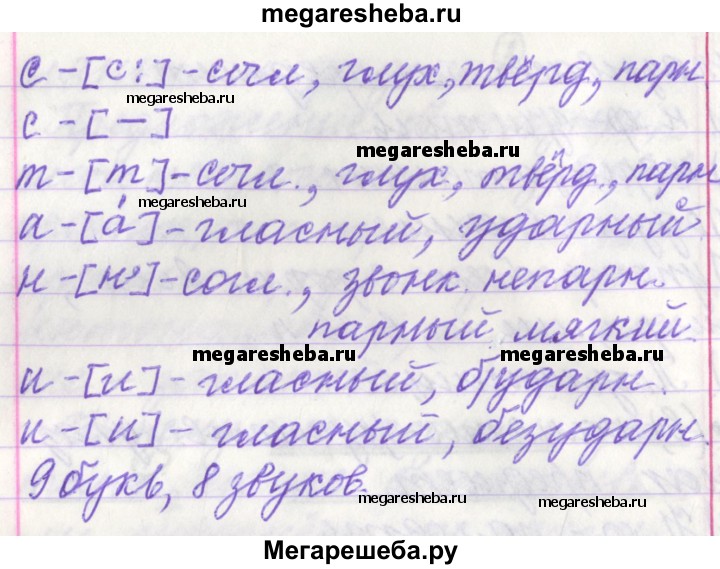 megaresheba.ru
с - [с:] - согл, глух, твёрд, парн
megaresheba.ru
с - [—]
megaresheba.ru
т - [т] - согл., глух, твёрд., парн
megaresheba.ru
а - [а́] - гласный, ударный
н - [н'] - согл., звонк. непарн.
парный мягкий.
megaresheba.ru megaresheba.ru
и - [и] - гласный, б/ударн.
и - [и] - гласный, безударн.
9 букв, 8 звуков.
megaresheba.ru megaresheba.ru
Мегарешеба.ру